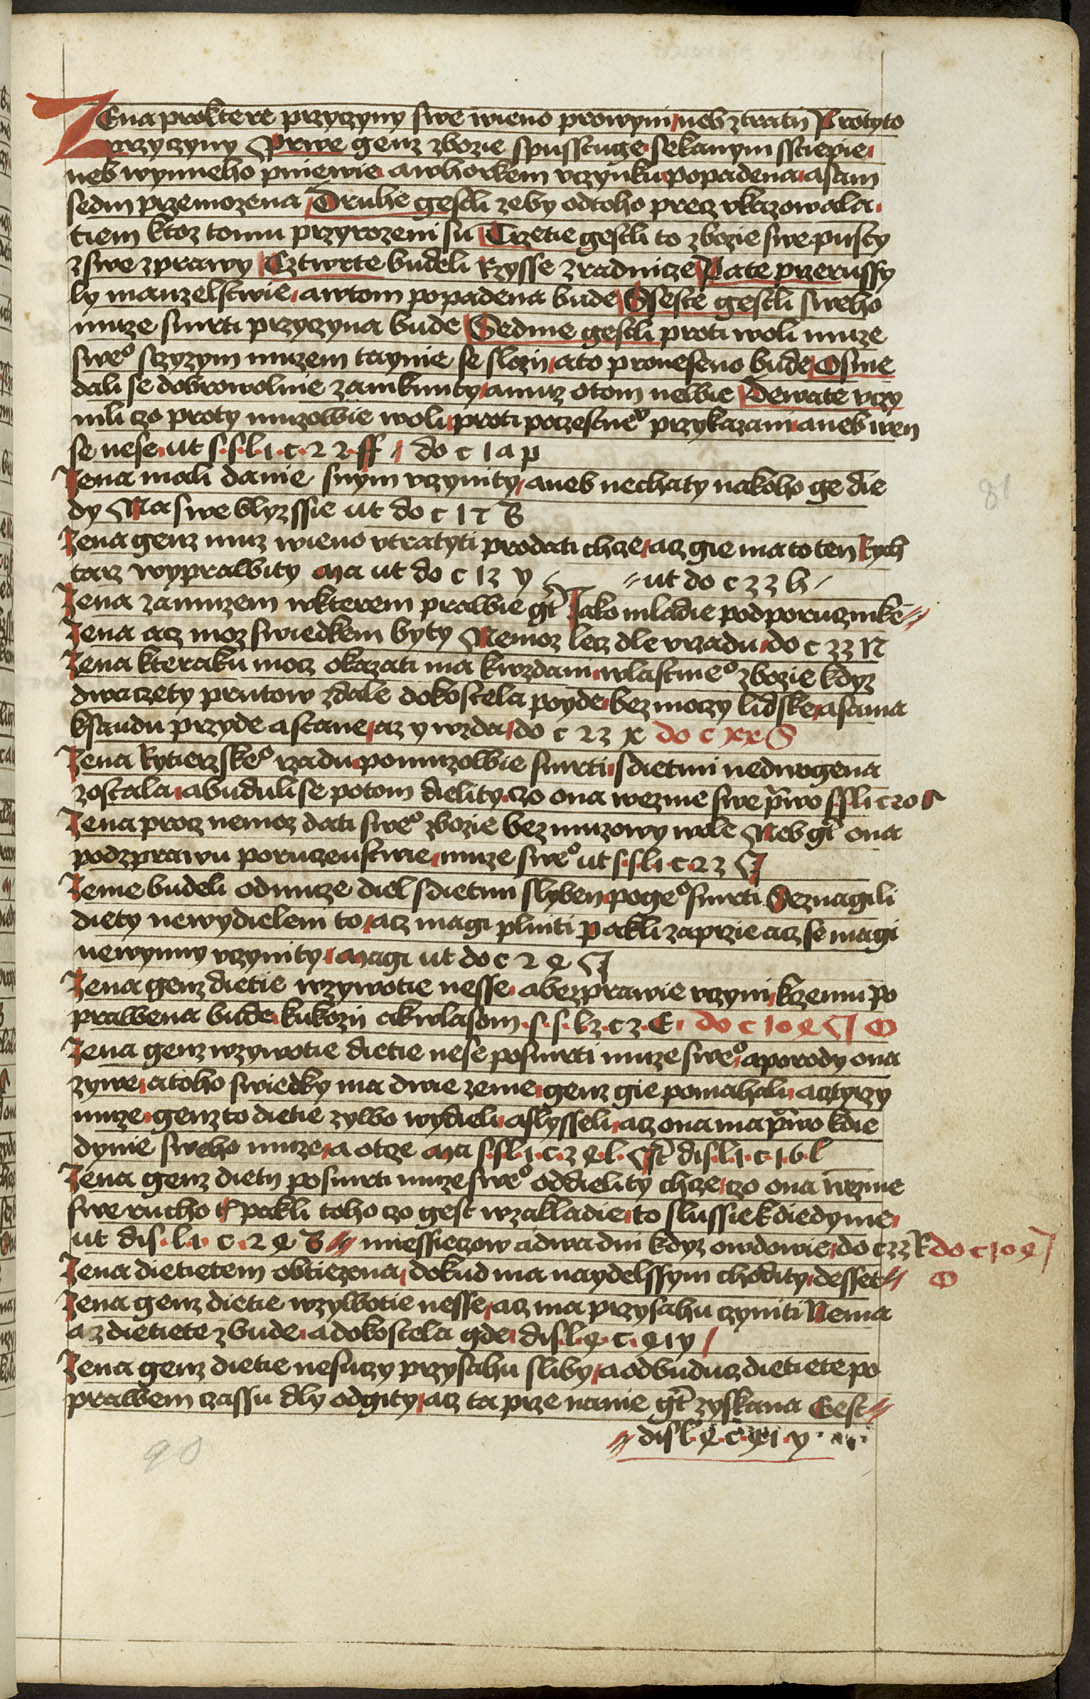 Zena proktere przyczyny swe wieno prowyni neb ztratij Protyto
przyczyny Prwe genz zbozie spusstuge sekanym sstiepie
neb wynneho pniewie awhorkem vczynku popadena a stim
sedm przemozena Druhe gestli zeby odtoho precz vkazowala
tiem ktoz tomu przyrozeni su Trzetie gestli to zbozie swe pusty
zswe zprawy Cztwrte budeli Rzysse zradnicze Pate przerussy
ly manzelstwie awtom popadena bude Sseste gestli sweho
muze smrti przyczyna bude Sedme gestli proti woli muze
sweo sczyzym muzem taynie se slozij ato proneseno bude Osme
dali se dobrowolnie zamknuty amuz otom newie Dewate vczy
nili czo proty muzowie woli proti poczestneo przykazani aneb wen
se nese ut s.s.l.i.c.22.ff do c 1 a p
Zena mali danie snym vczynity aneb nechaty nakoho ge die
dy Ma swe blyzssie ut do c 17 B
Zena genz muz wieno vtratyti prodati chcze acz gie ma to ten Rych
tarz wyprawity Ma ut do c 13 y ut do c 33 h
Zena zamuzem wkterem prawie gt Jako mladie podporucznike
Zena acz moz swiedkem byty Nemoz lecz dle vrzadu do c 33 N
Zena kteraku mocz okazati ma kwzdani wlastnieo zbozie kdyz
dwaczety prutow zdale dokostela poyde bez moczy lidske a sama
ksaudu przyde a stane acz y wzda do c 23 x do c xx S
Zena Rytierzskeo rzadu pomuzowie smrti sdietmi nedwogena
zostala abudulise potom dielity czo ona wezme swe prwo s.s.l.i c 20 S
Zena procz nemoz dati sweo zbozie bez muzowy wole Neb gt ona
podzprawu poruczenstwie muze sweo ut s.s.l.i.c.23
Zenie budeli odmuze diel sdietmi slyben pogeo smrti Seznagili
diety newydielem to acz magi plniti Pakli zaprzie acz se magi
newynny vczynity Magi ut do c 2 Q
Zena genz dietie wzywotie nesse abezprawie vczyni kczemu po
prawena bude kukozij akwlasom s.s.l2.c2.E. do c 10 Q O
Zena genz wzywotie dietie nese posmrti muze sweo aporody ona
zywe atoho swiedky ma dwie zenie genz gie pomahali acztyrzy
muze genz to dietie zywo widieli aslysseli acz ona ma prwo kdie
dynie sweho muze a otcze Ma s.s.l.i.c.2 Q.l. St dis.l.i.c 16 l
Zena genz dietij posmrti muze sweo oddielity chcze czo ona wezme
swe rucho Pakli toho czo gest wzakladie to slussie kdiedynie
ut dis.l.i.c.2 Q B miessieczow adwa dni kdyz owdowie do c 33 R do c 10 Q
Zena dietietem obtiezena dokud ma naydelssym chodity desset O
Zena genz dietie wzywotie nesse acz ma przysahu czyniti Nema
az dietiete zbude adokostela gde dis.l.Q.c.Q1 y
Zena genz dietie nesuczy przysahu sliby aodbuducz dietiete po
prawem czassu dly odgity acz ta prze nanie gt zyskana Gest
dis.l.Q.c.Q1.y
81
90